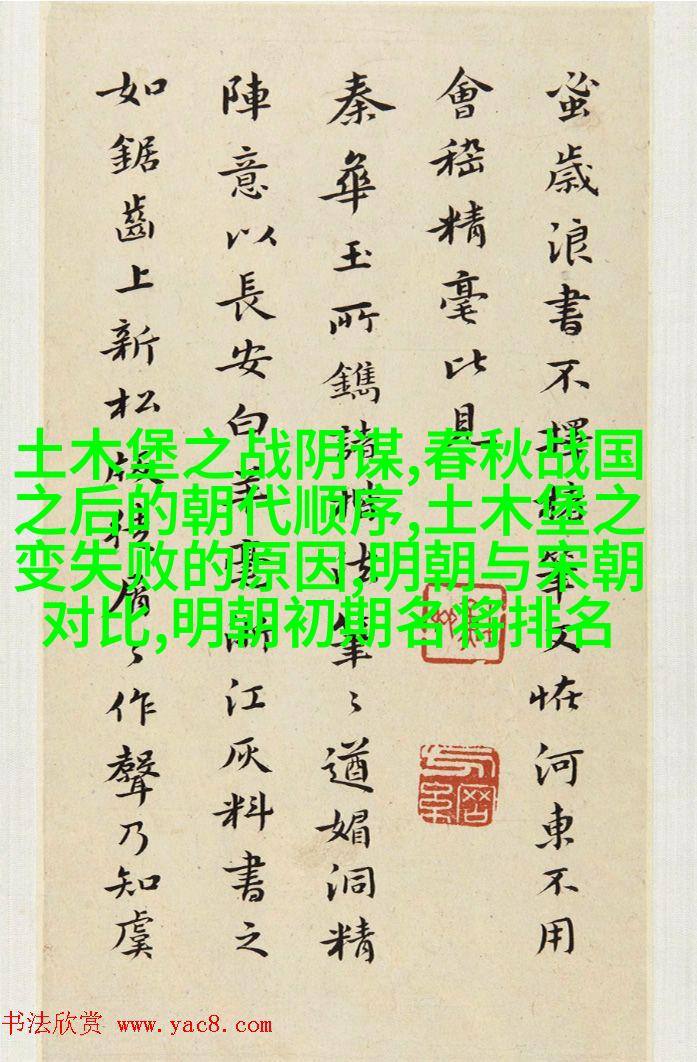 蚤歲浪書不擇筆又恠河東不用
會稽精毫比見
秦華玉所鐫諸帖法筆〻遒媚洞精
陣意以長安白羊毫浙江灰料書之
如鋸齒上新松板屑〻作聲乃知虞
土木堡之战阴谋,春秋战国
之后的朝代顺序,土木堡之
变失败的原因,明朝与宋朝
对比,明朝初期名将排名
书法欣赏 www.yac8.com